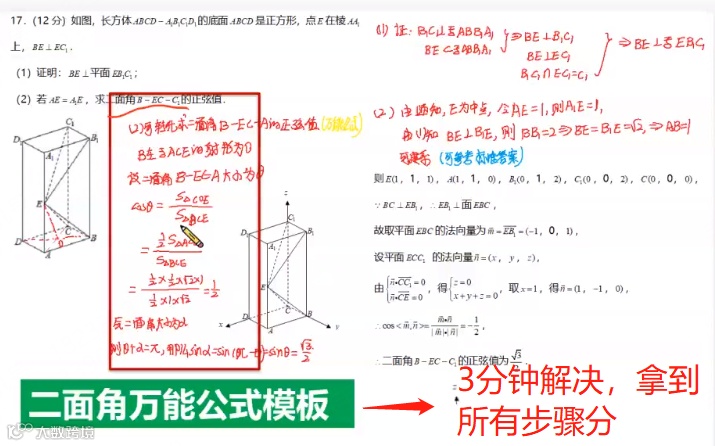 17. (12分) 如图，长方体ABCD-A₁B₁C₁D₁的底面ABCD是正方形，点E在棱AA₁
上，BE⊥EC₁.
(1) 证明：BE⊥平面EB₁C₁；
(2) 若AE=A₁E，求二面角B-EC-C₁的正弦值.
(2)可转化求二面角B-EC-A的正弦值
B在面ACE的射影为O
设二面角B-EC-A大小为θ
cosθ=S△COE/S△BCE
=½S△ACE/S△BCE
=½×½×√2×1/½×1×√2=½
二面角大小为α
则θ+α=π,
sinα=sin(π-θ)=sinθ=√3/2
D₁ C₁ B₁ A₁ E D C B A O
z D₁ C₁ A₁ B₁ E D C A B x y
二面角万能公式模板
(1) 证: B₁C₁⊥面ABB₁A₁
BE⊂面ABB₁A₁
⇒BE⊥B₁C₁
BE⊥EC₁
B₁C₁∩EC₁=C₁
⇒BE⊥面EB₁C₁
(2) 由题知, E为中点, 令AE=1, 则A₁E=1,
由(1)知 BE⊥B₁E, 则BB₁=2⇒BE=B₁E=√2,⇒AB=1
(可参考标准答案)
则E(1，1，1)，A(1，1，0)，B₁(0，1，2)，C₁(0，0，2)，C(0，0，0)，
∵BC⊥EB₁，∴EB₁⊥面EBC，
故取平面EBC的法向量为m=EB₁=(-1，0，1)，
设平面ECC₁的法向量n=(x，y，z)，
由{n·CC₁=0 n·CE=0，得{z=0 x+y+z=0，取x=1，得n=(1，-1，0)，
∴cos<m,n>=m·n/|m|·|n|=-1/2，
∴二面角B-EC-C₁的正弦值为√3/2.
z
3分钟解决，拿到
所有步骤分
大数跨境